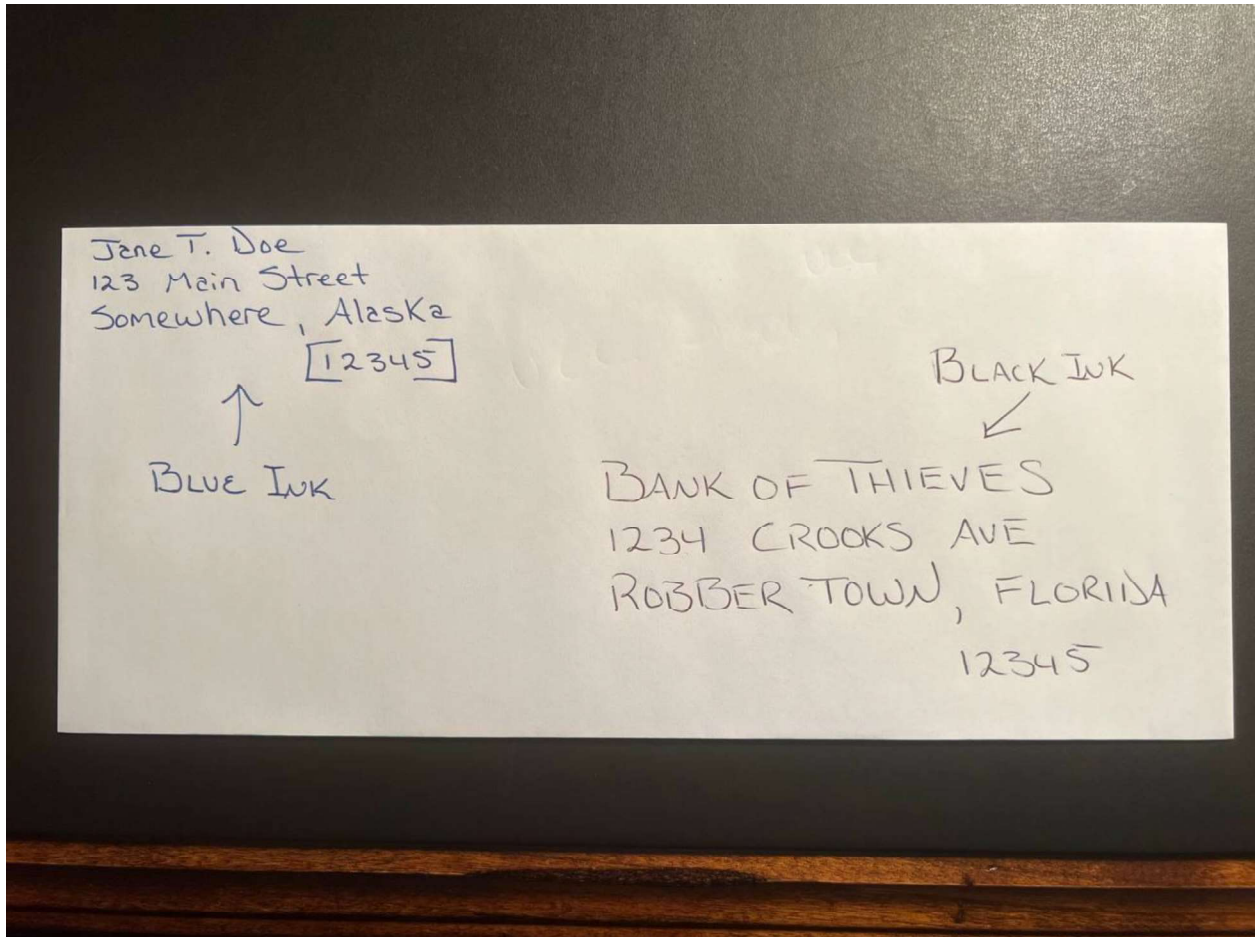 Jane T. Doe
123 Main Street
Somewhere, Alaska
[12345]
BLUE INK
BLACK INK
BANK OF THIEVES
1234 CROOKS AVE
ROBBER TOWN, FLORIDA
12345